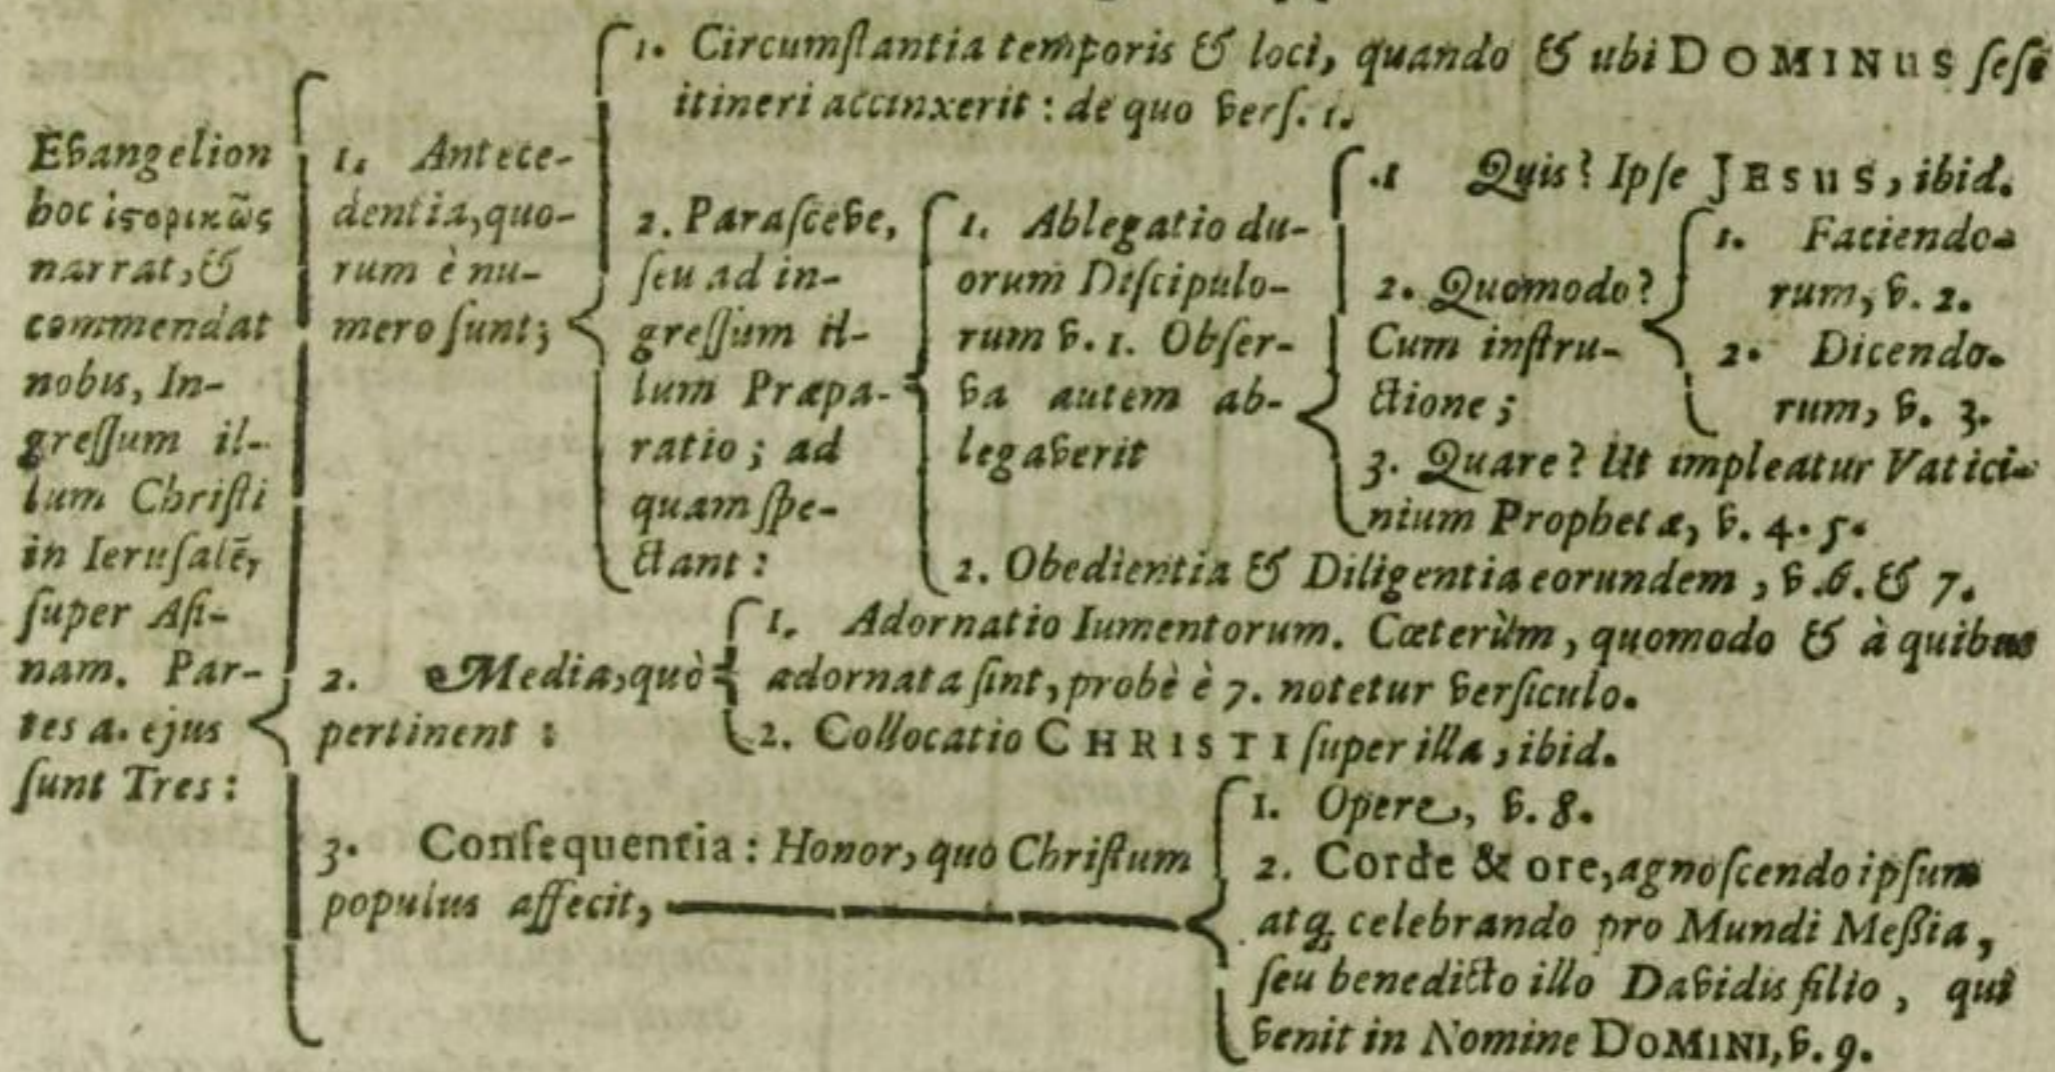 Evangelion
hoc ἱϛορικῶς
narrat, &
commendat
nobis, In-
gressum il-
lum Christi
in Ierusalē,
super Asi-
nam. Par-
tes a. ejus
sunt Tres:
1. Antece-
dentia, quo-
rum è nu-
mero sunt;
1. Circumstantia temporis & loci, quando & ubi DOMINUS sese
itineri accinxerit: de quo vers. 1.
2. Parasceve,
seu ad in-
gressum il-
lum Præpa-
ratio; ad
quam spe-
ctant:
1. Ablegatio du-
orum Discipulo-
rum v. 1. Obser-
va autem ab-
legaverit
.1 Quis? Ipse JESUS, ibid.
2. Quomodo?
Cum instru-
ctione;
1. Faciendo-
rum, v. 2.
2. Dicendo-
rum, v. 3.
3. Quare? Ut impleatur Vatici-
nium Prophetæ, v. 4. 5.
2. Obedientia & Diligentia eorundem, v. 6. & 7.
2. Media, quò
pertinent:
1. Adornatio Iumentorum. Cæterùm, quomodo & à quibus
adornata sint, probè è 7. notetur versiculo.
2. Collocatio CHRISTI super illa, ibid.
3. Consequentia: Honor, quo Christum
populus affecit,
1. Opere, v. 8.
2. Corde & ore, agnoscendo ipsum
atq; celebrando pro Mundi Meßia,
seu benedicto illo Davidis filio, qui
venit in Nomine DOMINI, v. 9.